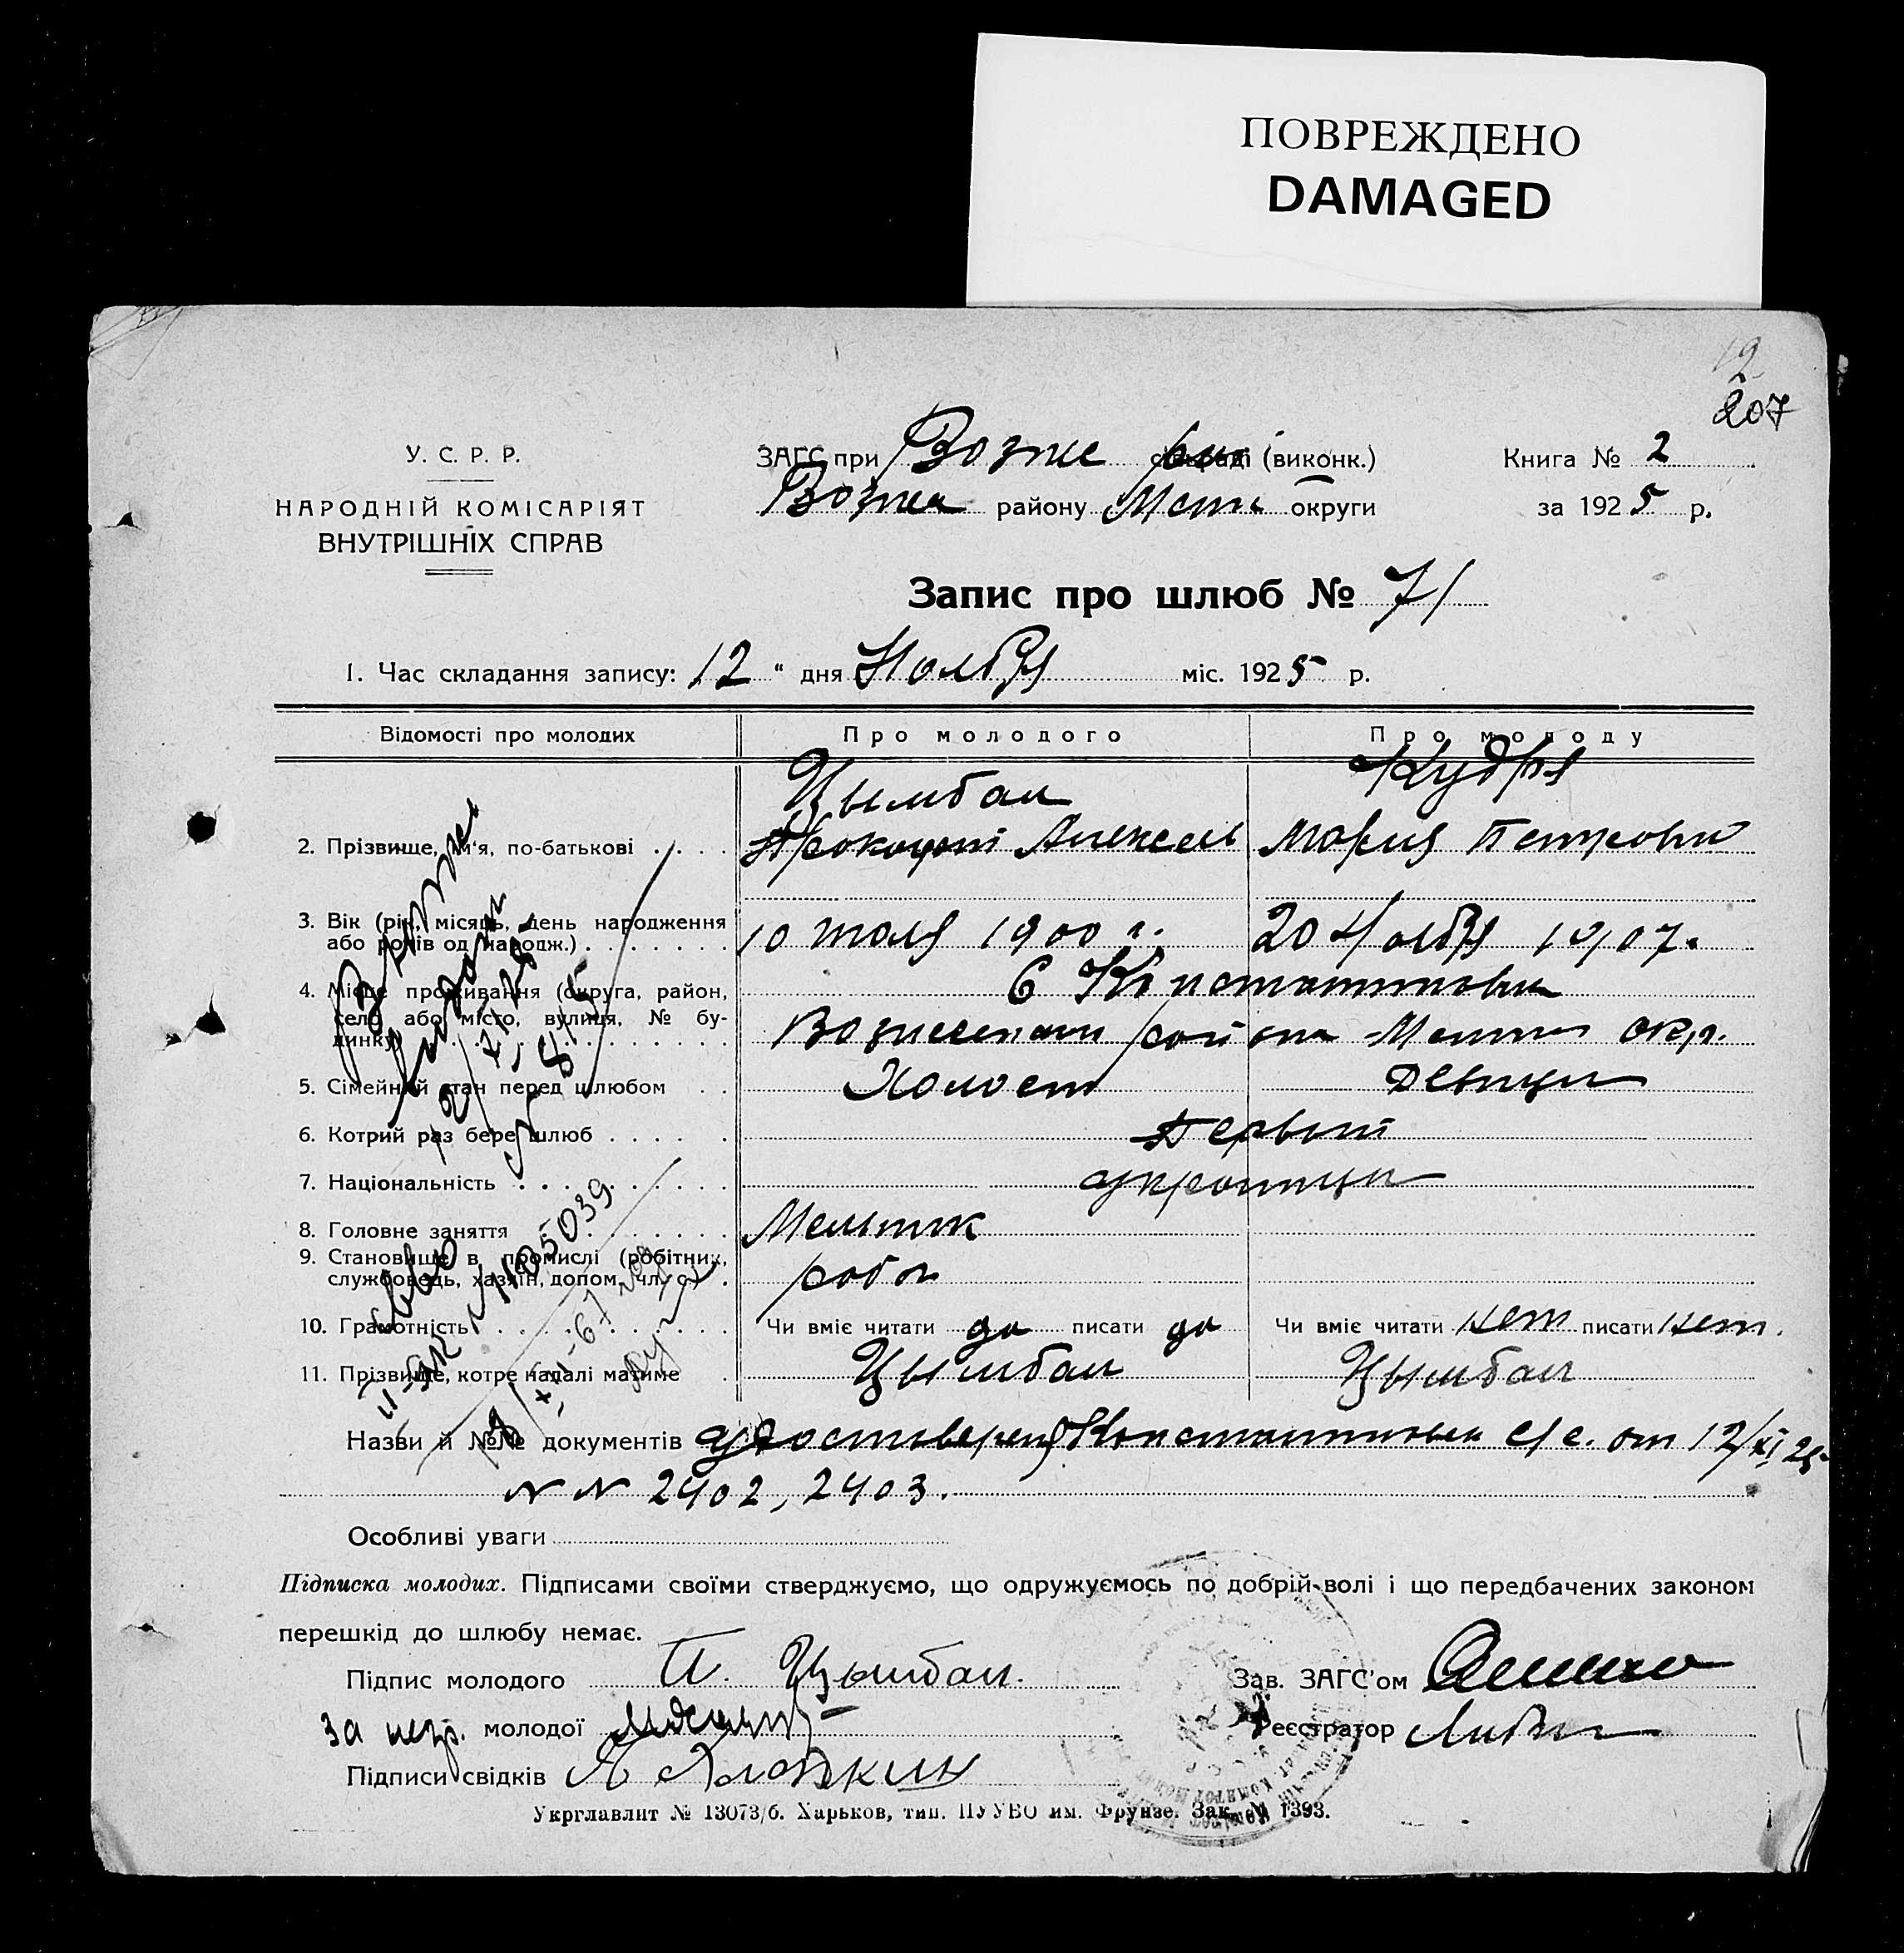 ПОВРЕЖДЕНО
DAMAGED
12
207
У. С. Р. Р.
НАРОДНІЙ КОМІСАРІЯТ
ВНУТРІШНІХ СПРАВ
ЗАГС при Возне рик (виконк.)
Вознес району Мели округи
Книга № 2
за 1925 р.
Запис про шлюб № 71
1. Час складання запису: 12 " дня Ноября міс. 1925 р.
Відомості про молодих Про молодого Про молоду
Цымбал Кудря
2. Прізвище, ім'я, по-батькові . . . . Прокофий Алексее Мария Петровн
3. Вік (рік, місяць, день народження
або років од народж.) . . . . . . . 10 июля 1900 г. 20 Ноября 1907.
4. Місце проживання (округа, район,
село або місто, вулиця, № бу-
динку)
С Константиновки
Вознесенск района Мелит окр.
5. Сімейний стан перед шлюбом . . Холост Девица
6. Котрий раз бере шлюб . . . . . Первый
7. Національність . . . . . . . . . украинцы
8. Головне заняття . . . . . . . Мельник
9. Становище в промислі (робітник,
службовець, хазяїн, допом. чл. с.) . рабоч
10. Грамотність Чи вміє читати да писати да Чи вміє читати нет писати нет.
11. Прізвище, котре надалі матиме . Цымбал Цымбал
Назви й №№ документів удостоверен Константиновск с/с. от 12/XI 25
NN 2402, 2403.
12/XI-25
N 815
ІІ-ЯК N 1105039
Особливі уваги
Підписка молодих. Підписами своїми стверджуємо, що одружуємось по добрій волі і що передбачених законом
перешкід до шлюбу немає.
Підпис молодого П. Цымбал.
За негр. молодої
Підписи свідків
Зав. ЗАГС'ом
Реєстратор
Укрглавлит № 13073/б. Харьков, тип. ПУУВО им. Фрунзе. Зак. № 1393.